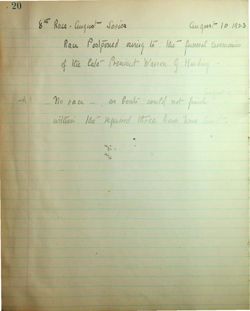 20
8th Race - August Series August 10 1923
Race Postponed owing to the funeral ceremonies
of the late President Warren G Harding.
No race - as boats could not finish
within the required three hour time